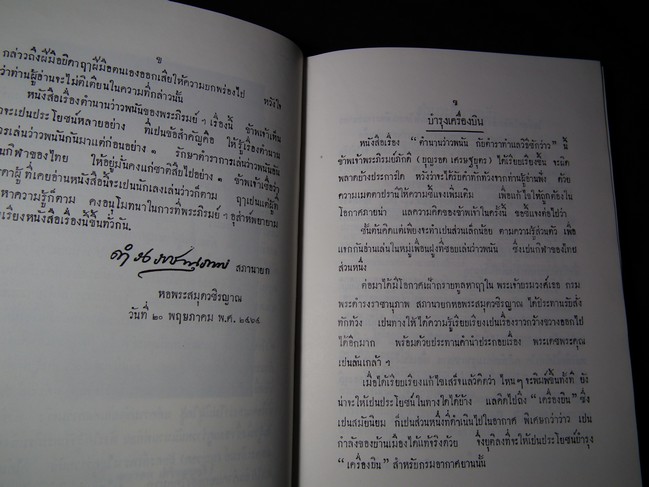 ช
กล่าวถึงฝีมือยิดาฤๅฝีมือตนเองออกเสียให้ความบกพร่องไป หวังใจ
ว่าท่านผู้อ่านจะไม่ติเตียนในความที่กล่าวนั้น
หนังสือเรื่องตำนานว่าวพนันของพระภิรมย์ฯ เรื่องนี้ ข้าพเจ้าเห็น
ว่าจะเปนประโยชน์หลายอย่าง ที่เปนข้อสำคัญคือ ให้รู้เรื่องตำนาน
การเล่นว่าวพนันกันมาแต่ก่อนอย่าง ๑ รักษาตำราการเล่นว่าวพนันอัน
เปนกีฬาของไทย ให้อยู่มั่นคงแก่ชาติสืบไปอย่าง ๑ ข้าพเจ้าเชื่อว่า
ผู้ ที่เคยอ่านหนังสือนี้จะเปนนักเลงเล่นว่าวก็ตาม ฤๅเปนแต่ผู้ที่
หาความรู้ก็ตาม คงอนุโมทนาในการที่พระภิรมย์ฯ อุส่าห์พยายาม
เรียงหนังสือเรื่องนี้ขึ้นทั่วกัน.
ดำรงราชานุภาพ สภานายก
หอพระสมุดวชิรญาณ
วันที่ ๒๐ พฤษภาคม พ.ศ. ๒๔๖๔
บำรุงเครื่องบิน
หนังสือเรื่อง “ตำนานว่าวพนัน กับตำราทำแลวิธีชักว่าว” นี้
ข้าพเจ้าพระภิรมย์ภักดี (บุญรอด เศรษฐบุตร) ได้เรียบเรียงขึ้น จะผิด
พลาดบ้างประการใด หวังว่าจะได้รับคำทักท้วงจากท่านผู้อ่านพึง ด้วย
ความเมตตาปรานีให้ความชี้แจงเพิ่มเติม เพื่อแก้ไขให้ถูกต้องใน
โอกาศภายน่า แลความคิดของข้าพเจ้าในครั้งนี้ ขอชี้แจงต่อไปว่า
ชั้นต้นคิดแต่เพียงจะทำเปนส่วนเล็กน้อย ตามความรู้ส่วนตัว เพื่อ
แจกกันอ่านเล่นในหมู่เพื่อนฝูงที่ชอบเล่นว่าวพนัน ซึ่งเปนกีฬาของไทย
ส่วนหนึ่ง
ต่อมาได้มีโอกาศเฝ้ากราบทูลหาฤๅใน พระเจ้าบรมวงศ์เธอ กรม
พระดำรงราชานุภาพ สภานายกหอพระสมุดวชิรญาณ ได้ประทานรับสั่ง
ทักท้วง เปนทางให้ได้ความรู้เรียบเรียงเปนเรื่องราวกว้างขวางออกไป
ได้อีกมาก พร้อมด้วยประทานคำนำประกอบเรื่อง พระเดชพระคุณ
เปนล้นเกล้า ฯ
เมื่อได้เรียบเรียงแก้ไขเสร็จแล้วคิดว่า ไหน ๆ จะพิมพ์ขึ้นทั้งที ยัง
น่าจะให้เปนประโยชน์ในทางใดได้บ้าง แลคิดไปถึง “เครื่องบิน” ซึ่ง
เปนสมัยนิยม ก็เปนส่วนหนึ่งที่ดำเนินไปในอากาศ พิเศษกว่าว่าว เปน
กำลังของบ้านเมืองได้แท้จริงด้วย จึงยุติลงที่จะให้เปนประโยชน์บำรุง
“เครื่องบิน” สำหรับกรมอากาศยานนั้น